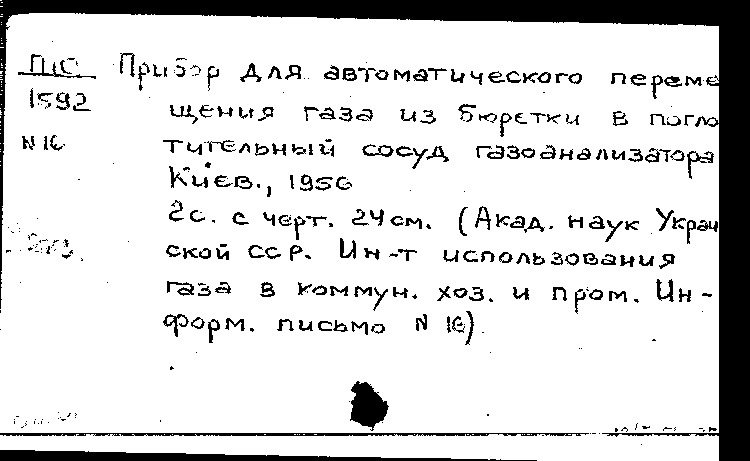 Прибор для автоматического переме
щения газа из бюретки в погло
тительный сосуд газоанализатора
Киев., 1956
2с. с черт. 24см. (Акад. наук Украи
ской ССР. Ин-т использования
газа в коммун. хоз. и пром. Ин-
форм. письмо N 16)
1592
N 16